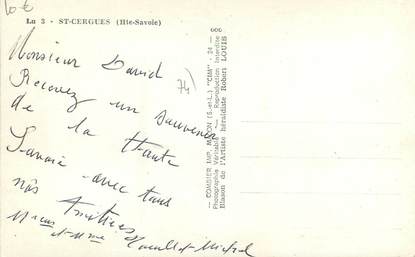 10 €
Lu 3 - ST-CERGUES (Hte-Savoie)
Monsieur David
74
Recevez un souvenir
de la Haute
Savoie avec tous
nos Amitiées
et Mme
606
COMBIER IMP. MACON (S.-et-L.) "CIM" - 24 -
Photographie Véritable - Reproduction Interdite
Blason de l'Artiste héraldiste Robert LOUIS